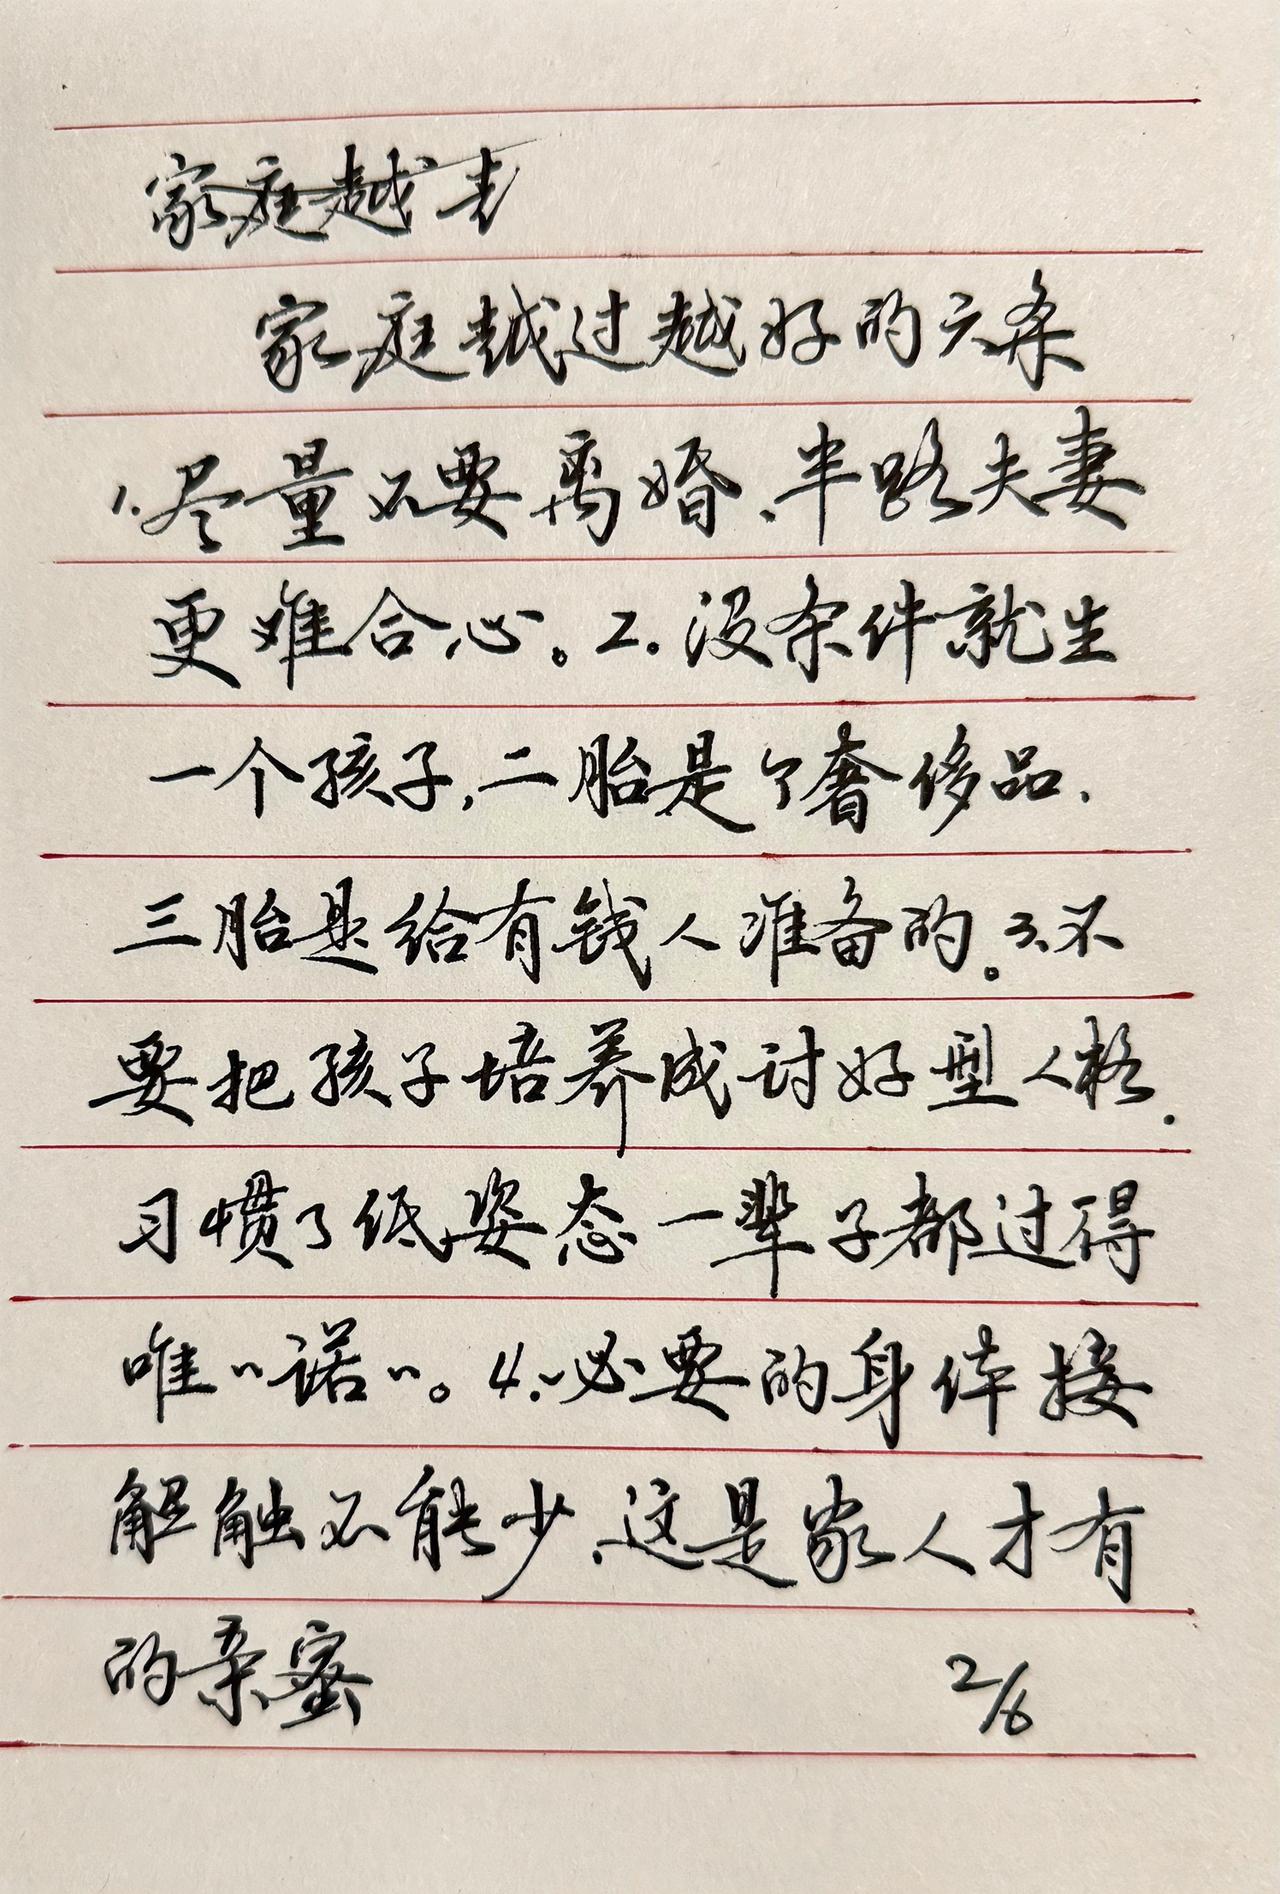 家庭越走
家庭越过越好的六条
1、尽量不要离婚、半路夫妻
更难合心。2.没条件就生
一个孩子,二胎是个奢侈品、
三胎是给有钱人准备的。3、不
要把孩子培养成讨好型人格.
习惯了低姿态一辈子都过得
唯"诺"。4、必要的身体接
解触不能少、这是家人才有
的亲蜜
2/6